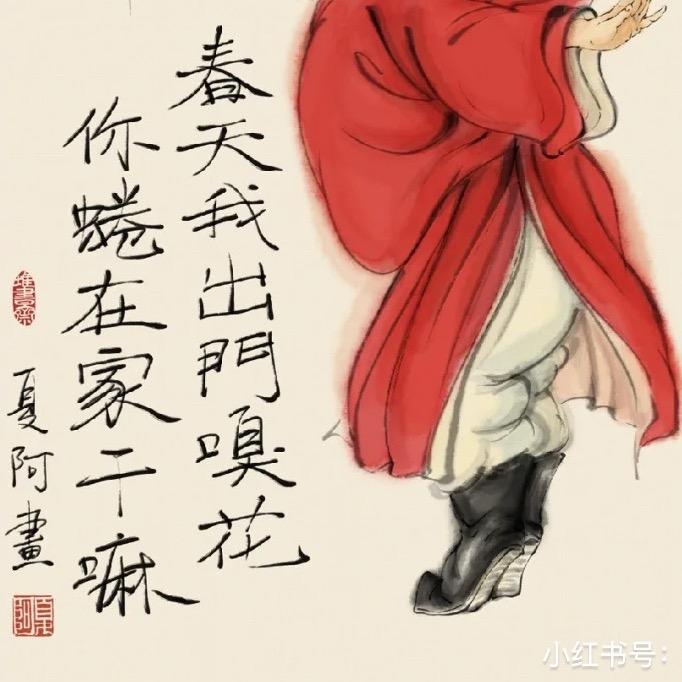 春天我出門嗅花
你蜷在家干嘛
夏阿畫
夏阿
小红书号：